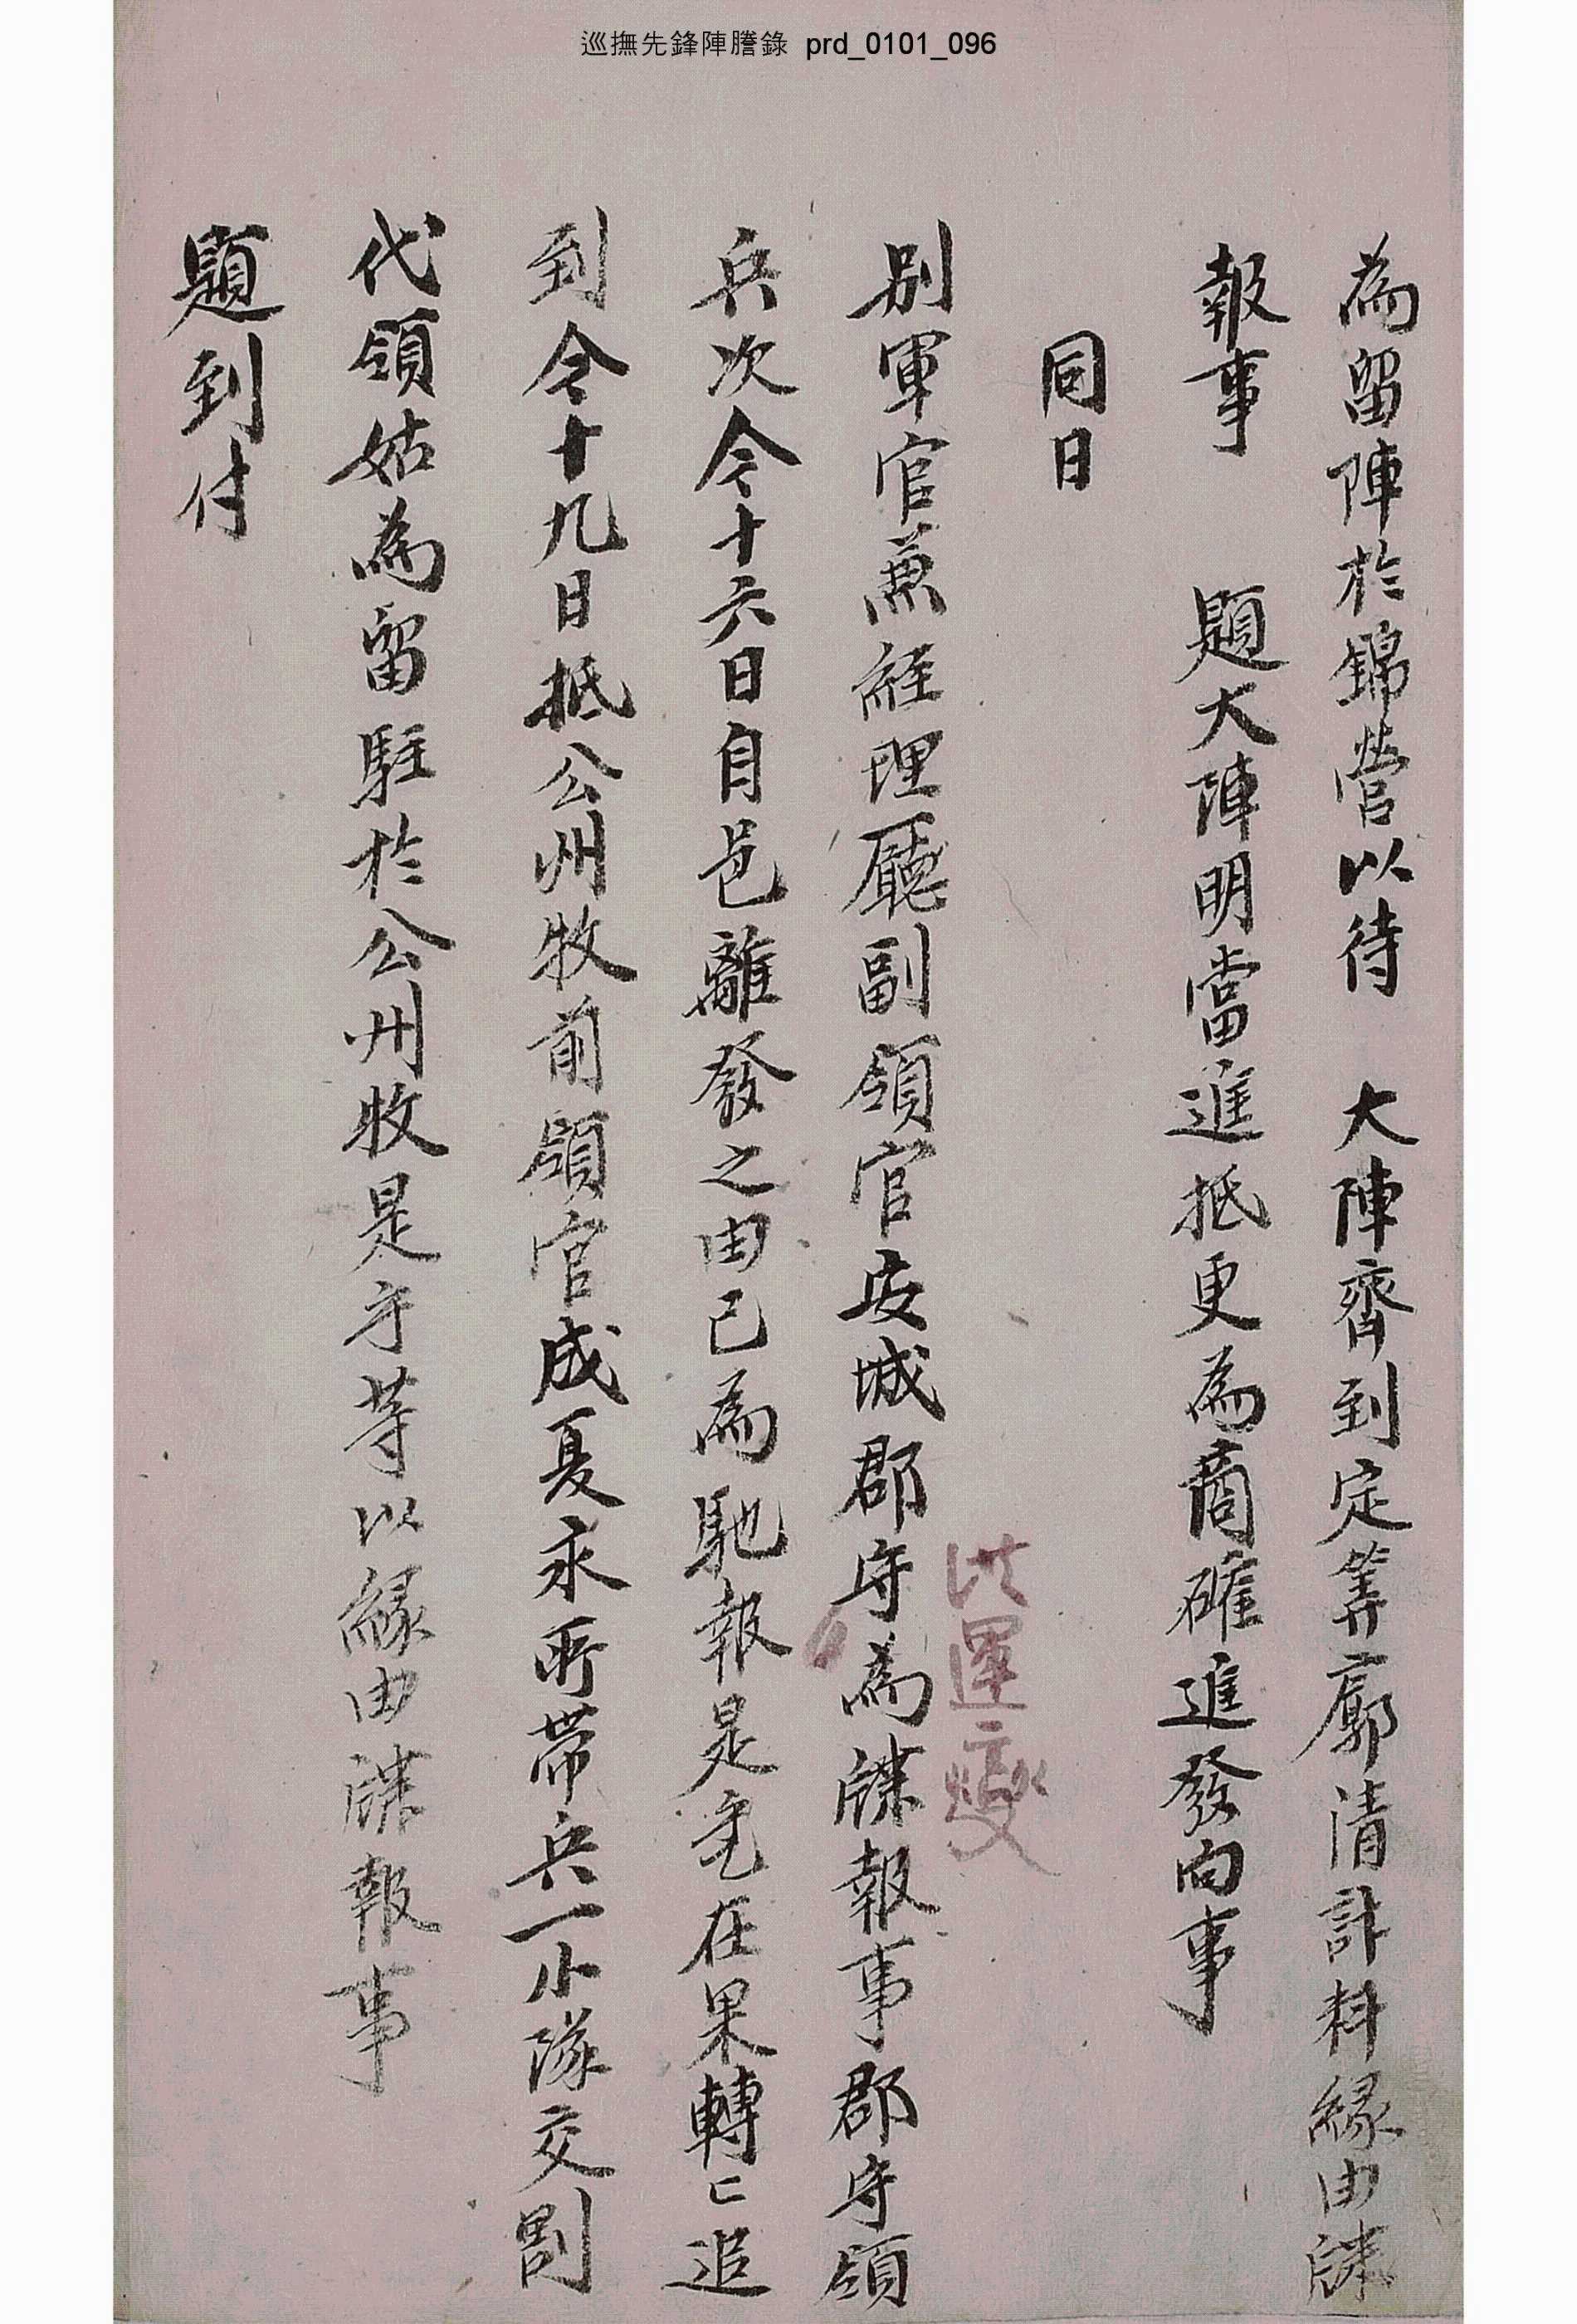 巡撫先鋒陣謄錄 prd_0101_096
為留陣於錦營以待 大陣齊到定筭廓清計料緣由牒
報事 題大陣明當進抵更為商確進發向事
同日
洪運燮
別軍官兼經理廳副領官安城郡守為牒報事郡守領
兵次今十六日自邑離發之由已為馳報是乎在果轉〻追
到今十九日抵公州牧前領官成夏永所帶兵一小隊交割
代領姑為留駐於公州牧是乎等以緣由牒報事
題到付